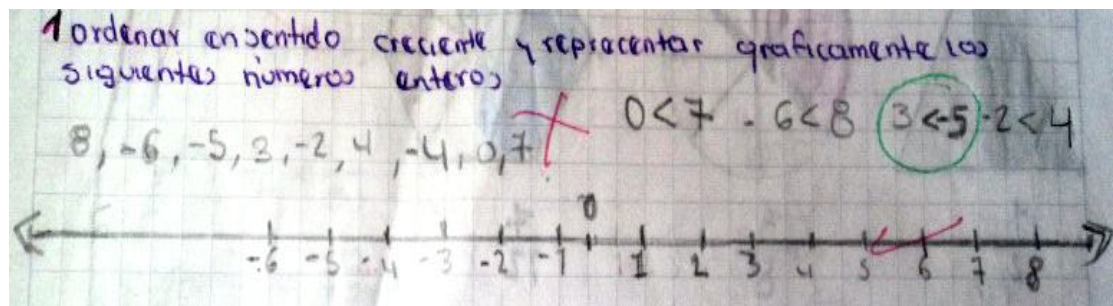 1 ordenar en sentido creciente y reprecentar graficamente los
siguientes números enteros
0<7 - 6<8 3<-5 -2<4
8, -6, -5, 3, -2, 4, -4, 0, 7
0
-6 -5 -4 -3 -2 -1 1 2 3 4 5 6 7 8